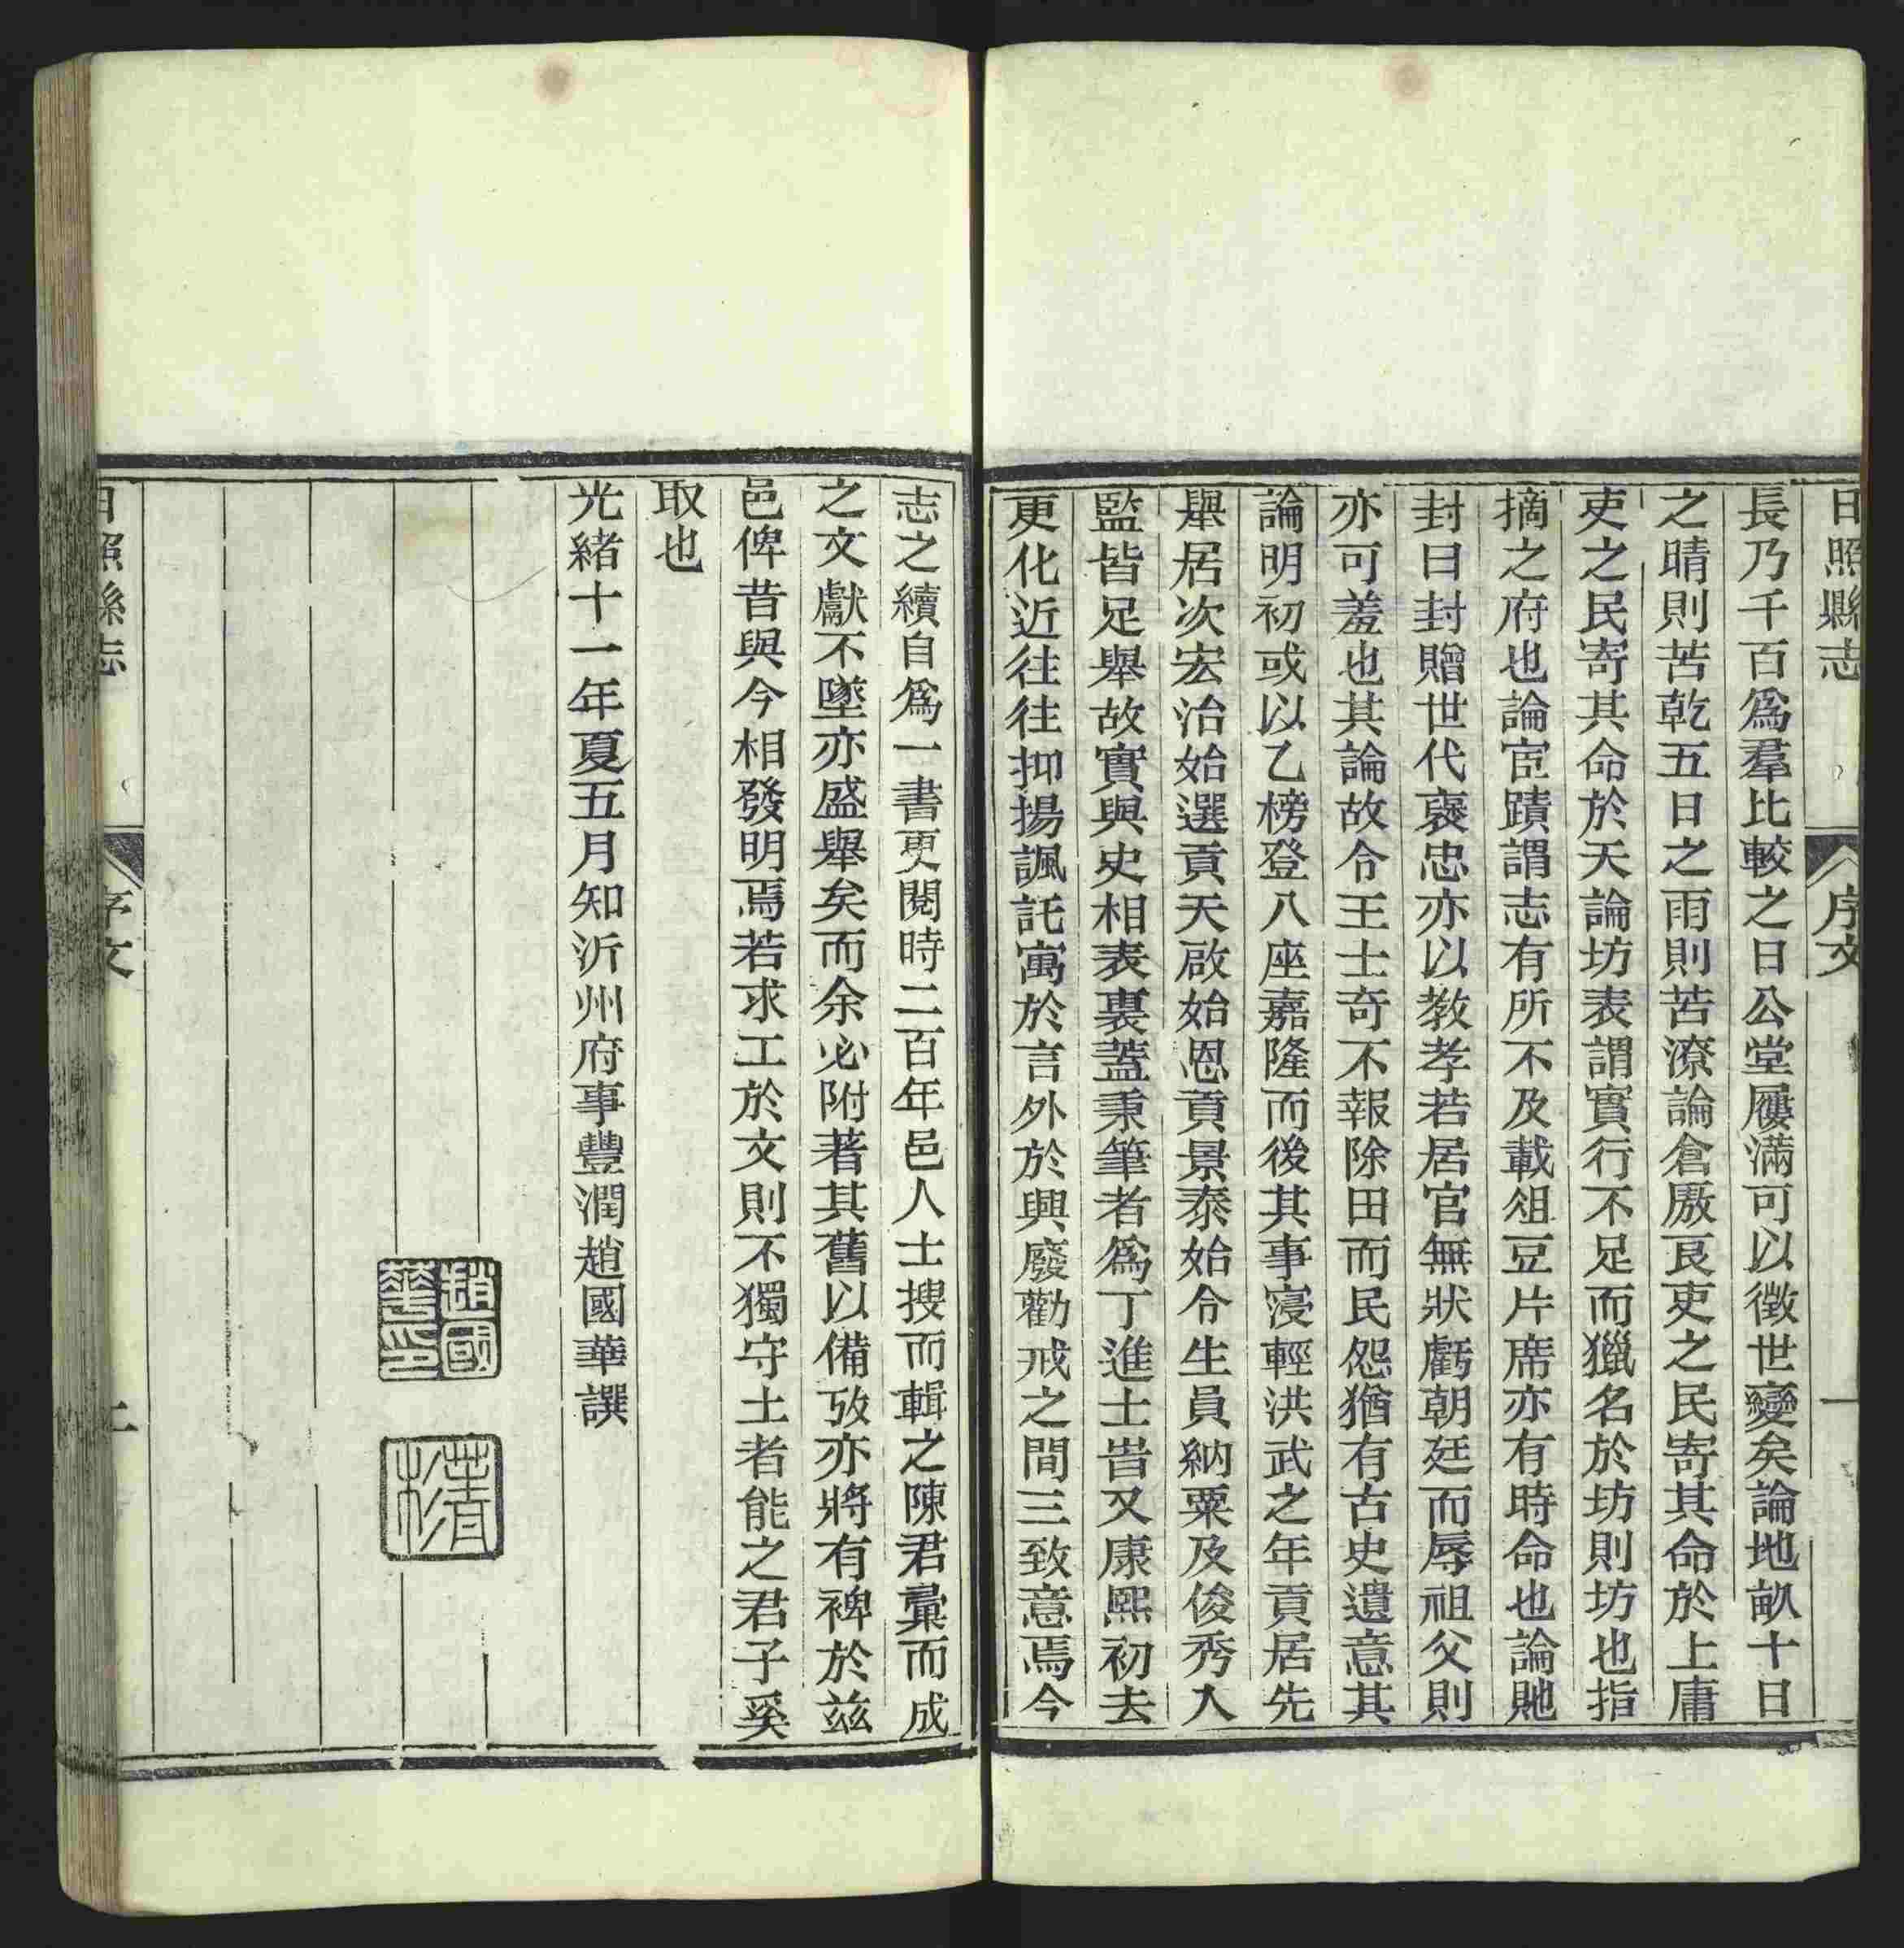 日照縣志 序文 一
長乃千百爲羣比較之日公堂屨滿可以徵世變矣論地畝十日
之晴則苦乾五日之雨則苦潦論倉厫良吏之民寄其命於上庸
吏之民寄其命於天論坊表謂實行不足而獵名於坊則坊也指
摘之府也論宦蹟謂志有所不及載俎豆片席亦有時命也論貤
封曰封贈世代襃忠亦以教孝若居官無狀虧朝廷而辱祖父則
亦可羞也其論故令王士奇不報除田而民怨猶有古史遺意其
論明初或以乙榜登八座嘉隆而後其事寖輕洪武之年貢居先
舉居次宏治始選貢天啟始恩貢景泰始令生員納粟及俊秀入
監皆足舉故實與史相表裏蓋秉筆者爲丁進士旹又康熙初去
更化近往往抑揚諷託寓於言外於興廢勸戒之間三致意焉今
志之續自爲一書更閱時二百年邑人士搜而輯之陳君彙而成
之文獻不墜亦盛舉矣而余必附著其舊以備攷亦將有裨於兹
邑俾昔與今相發明焉若求工於文則不獨守土者能之君子奚
取也
光緒十一年夏五月知沂州府事豐潤趙國華譔
趙國華印
菁衫
日照縣志 序文 二